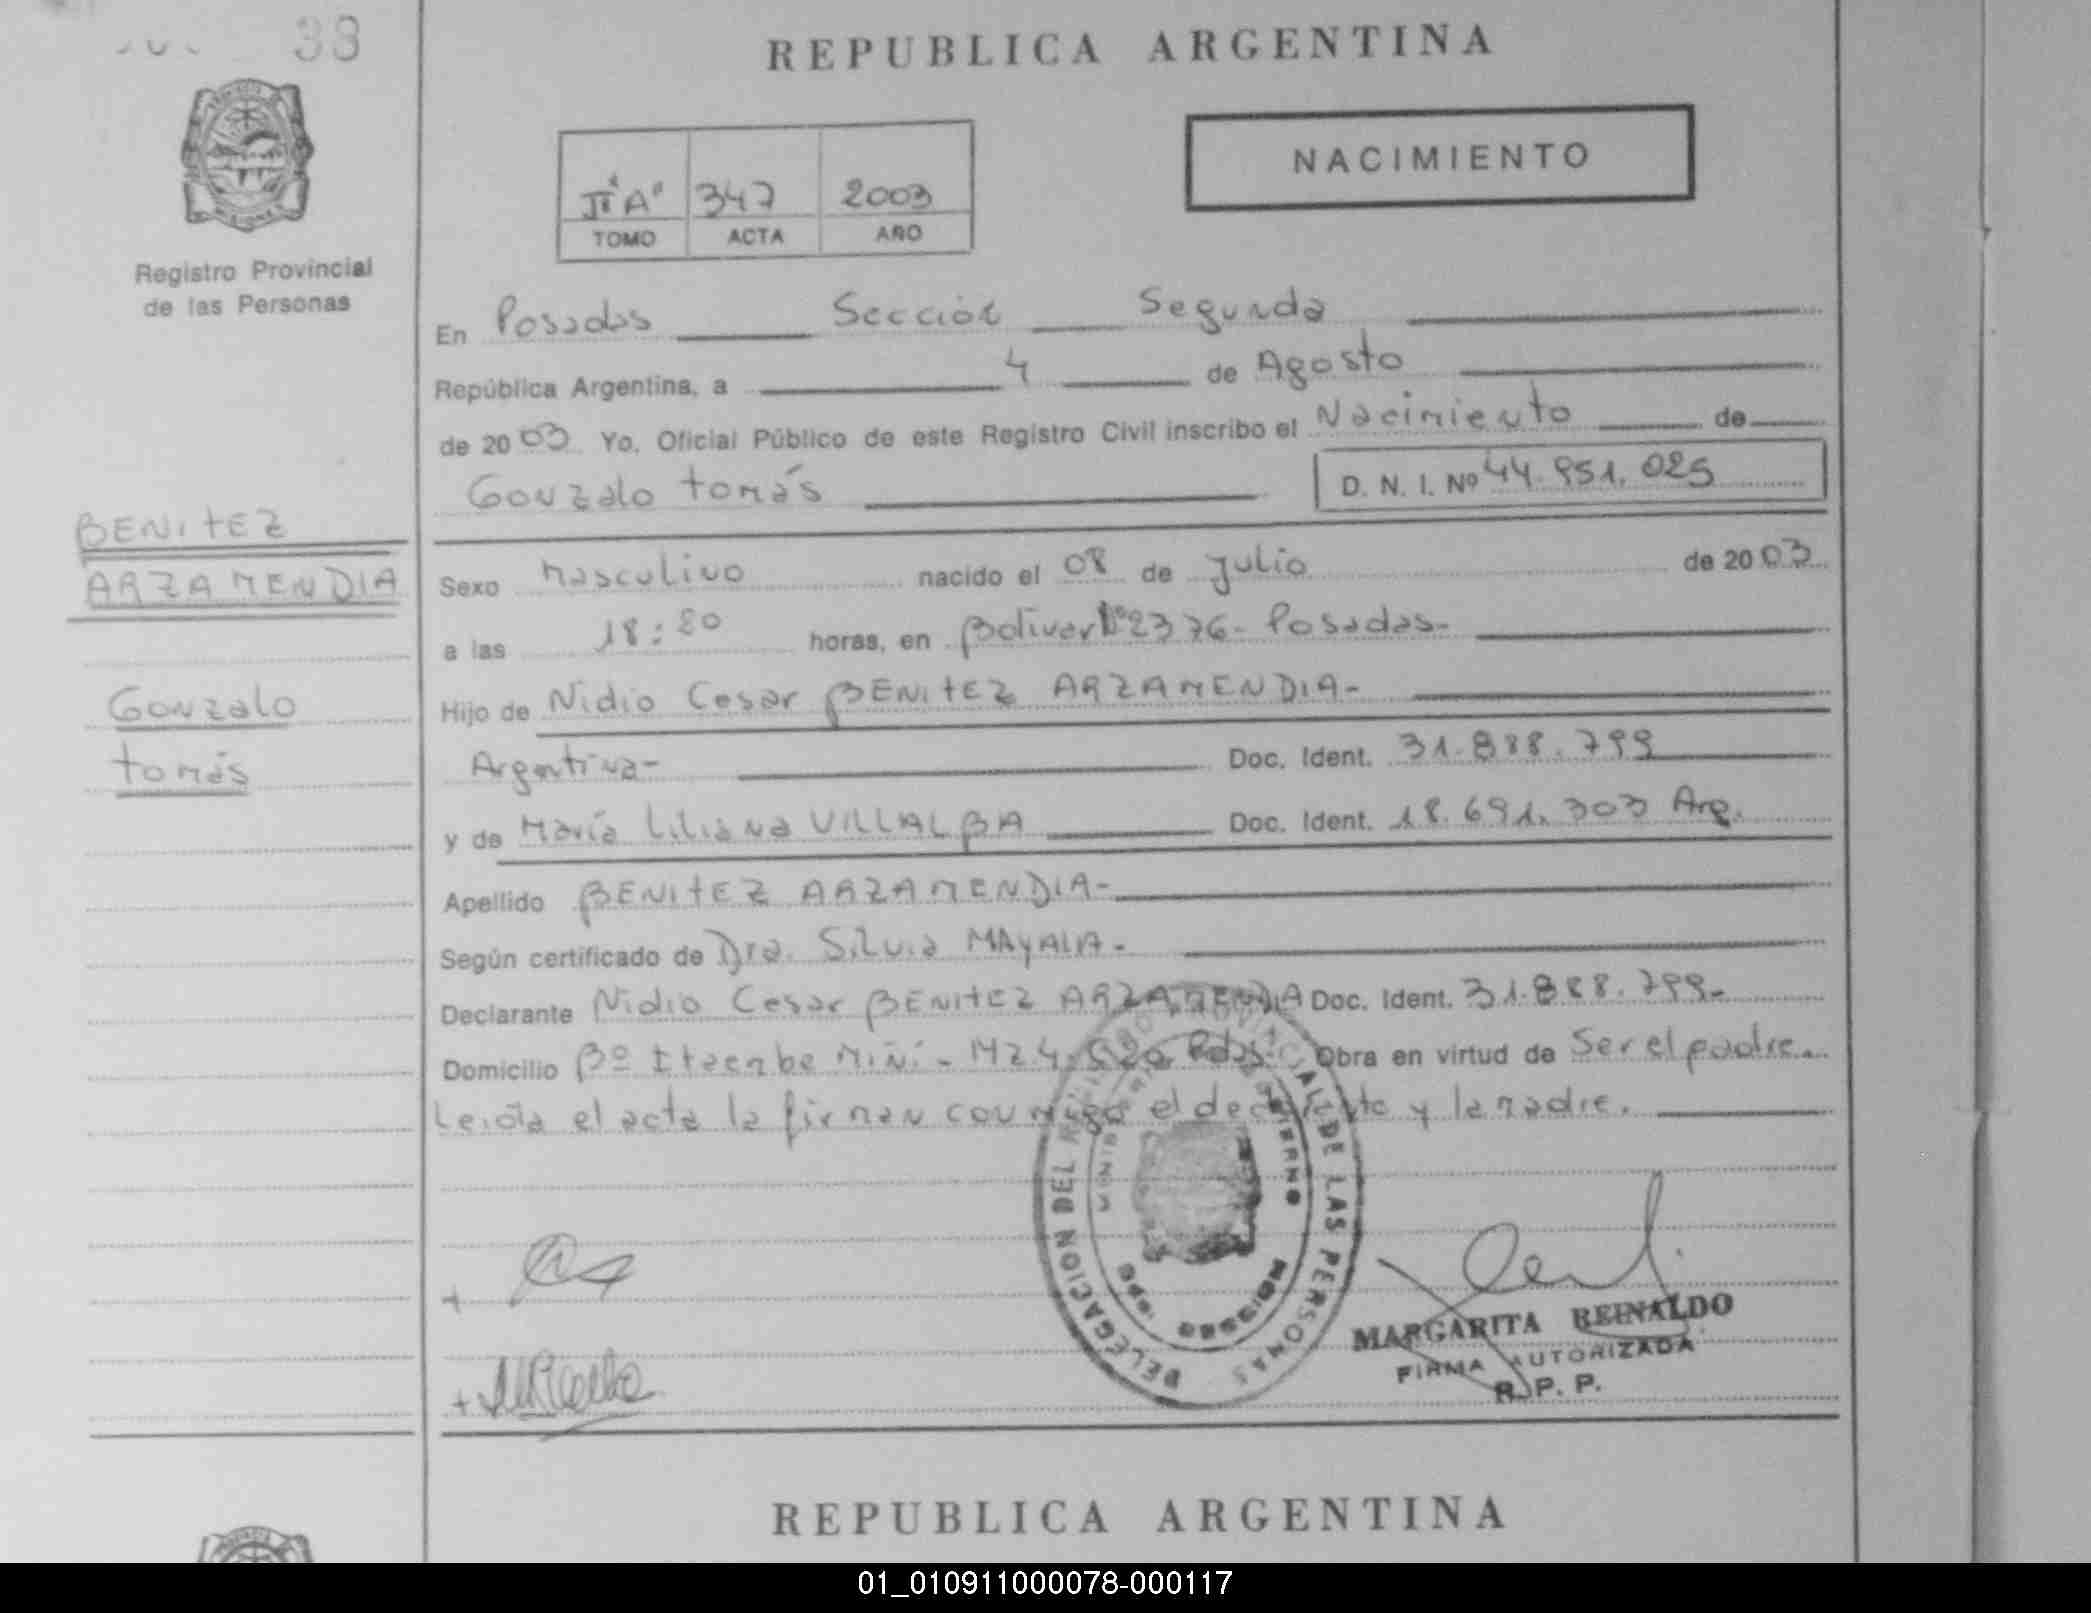 33
REPUBLICA ARGENTINA
NACIMIENTO
II "A" 347 2003
TOMO ACTA AÑO
Registro Provincial
de las Personas
En Posadas Sección Segunda
República Argentina, a 4 de Agosto
de 2003 Yo, Oficial Público de este Registro Civil inscribo el Nacimiento de
Gonzalo Tomás D. N. I. Nº 44.951.025
BENITEZ
ARZAMENDIA
Gonzalo
Tomás
Sexo Masculino nacido el 08 de Julio de 2003
a las 18:20 horas, en Bolivar Nº 2376- Posadas-
Hijo de Nidio Cesar BENITEZ ARZAMENDIA-
Argentina- Doc. Ident. 31.888.799
y de María Liliana VILLALBA Doc. Ident. 18.691.303 Arg.
Apellido BENITEZ ARZAMENDIA-
Según certificado de Dra. Silvia MAYALA-
Declarante Nidio Cesar BENITEZ ARZAMENDIA Doc. Ident. 31.888.799-
Domicilio Bº Itaembe Miñi- Mz 4 Pdas- Obra en virtud de Ser el padre.
Leída el acta la firman conmigo el declarante y la madre.
DELEGACION DEL REGISTRO PROVINCIAL DE LAS PERSONAS
MINISTERIO DE GOBIERNO
MISIONES
MARGARITA REINALDO
FIRMA AUTORIZADA
R. P. P.
REPUBLICA ARGENTINA
01_010911000078-000117